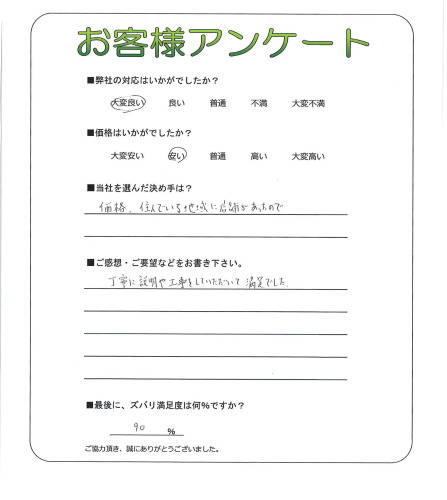 お客様アンケート
■弊社の対応はいかがでしたか？
大変良い 良い 普通 不満 大変不満
■価格はいかがでしたか？
大変安い 安い 普通 高い 大変高い
■当社を選んだ決め手は？
価格、住んでいる地域に店舗があったので
■ご感想・ご要望などをお書き下さい。
丁寧に説明や工事をしていただいて満足でした。
■最後に、ズバリ満足度は何％ですか？
90 ％
ご協力頂き、誠にありがとうございました。